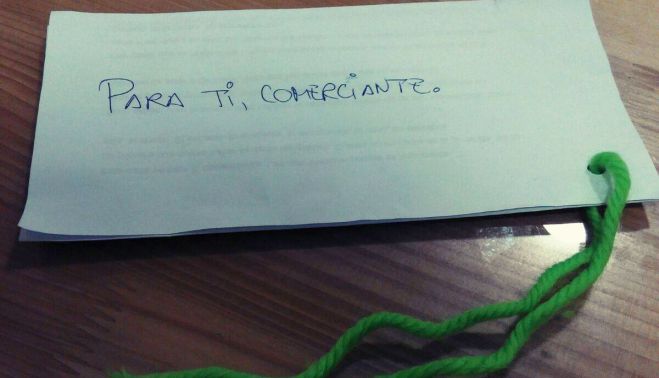 PARA Ti, COMERCiANTE.